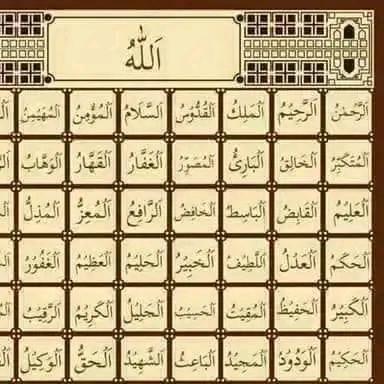 اَللّٰهُ
اَلرَّحْمٰنُ اَلرَّحِيْمُ اَلْمَلِكُ اَلْقُدُّوْسُ اَلسَّلَامُ اَلْمُؤْمِنُ اَلْمُهَيْمِنُ
اَلْمُتَكَبِّرُ اَلْخَالِقُ اَلْبَارِئُ اَلْمُصَوِّرُ اَلْغَفَّارُ اَلْقَهَّارُ اَلْوَهَّابُ
اَلْعَلِيْمُ اَلْقَابِضُ اَلْبَاسِطُ اَلْخَافِضُ اَلرَّافِعُ اَلْمُعِزُّ اَلْمُذِلُّ
اَلْحَكَمُ اَلْعَدْلُ اَللَّطِيْفُ اَلْخَبِيْرُ اَلْحَلِيْمُ اَلْعَظِيْمُ اَلْغَفُوْرُ
اَلْكَبِيْرُ اَلْحَفِيْظُ اَلْمُقِيْتُ اَلْحَسِيْبُ اَلْجَلِيْلُ اَلْكَرِيْمُ اَلرَّقِيْبُ
اَلْحَكِيْمُ اَلْوَدُوْدُ اَلْمَجِيْدُ اَلْبَاعِثُ اَلشَّهِيْدُ اَلْحَقُّ اَلْوَكِيْلُ